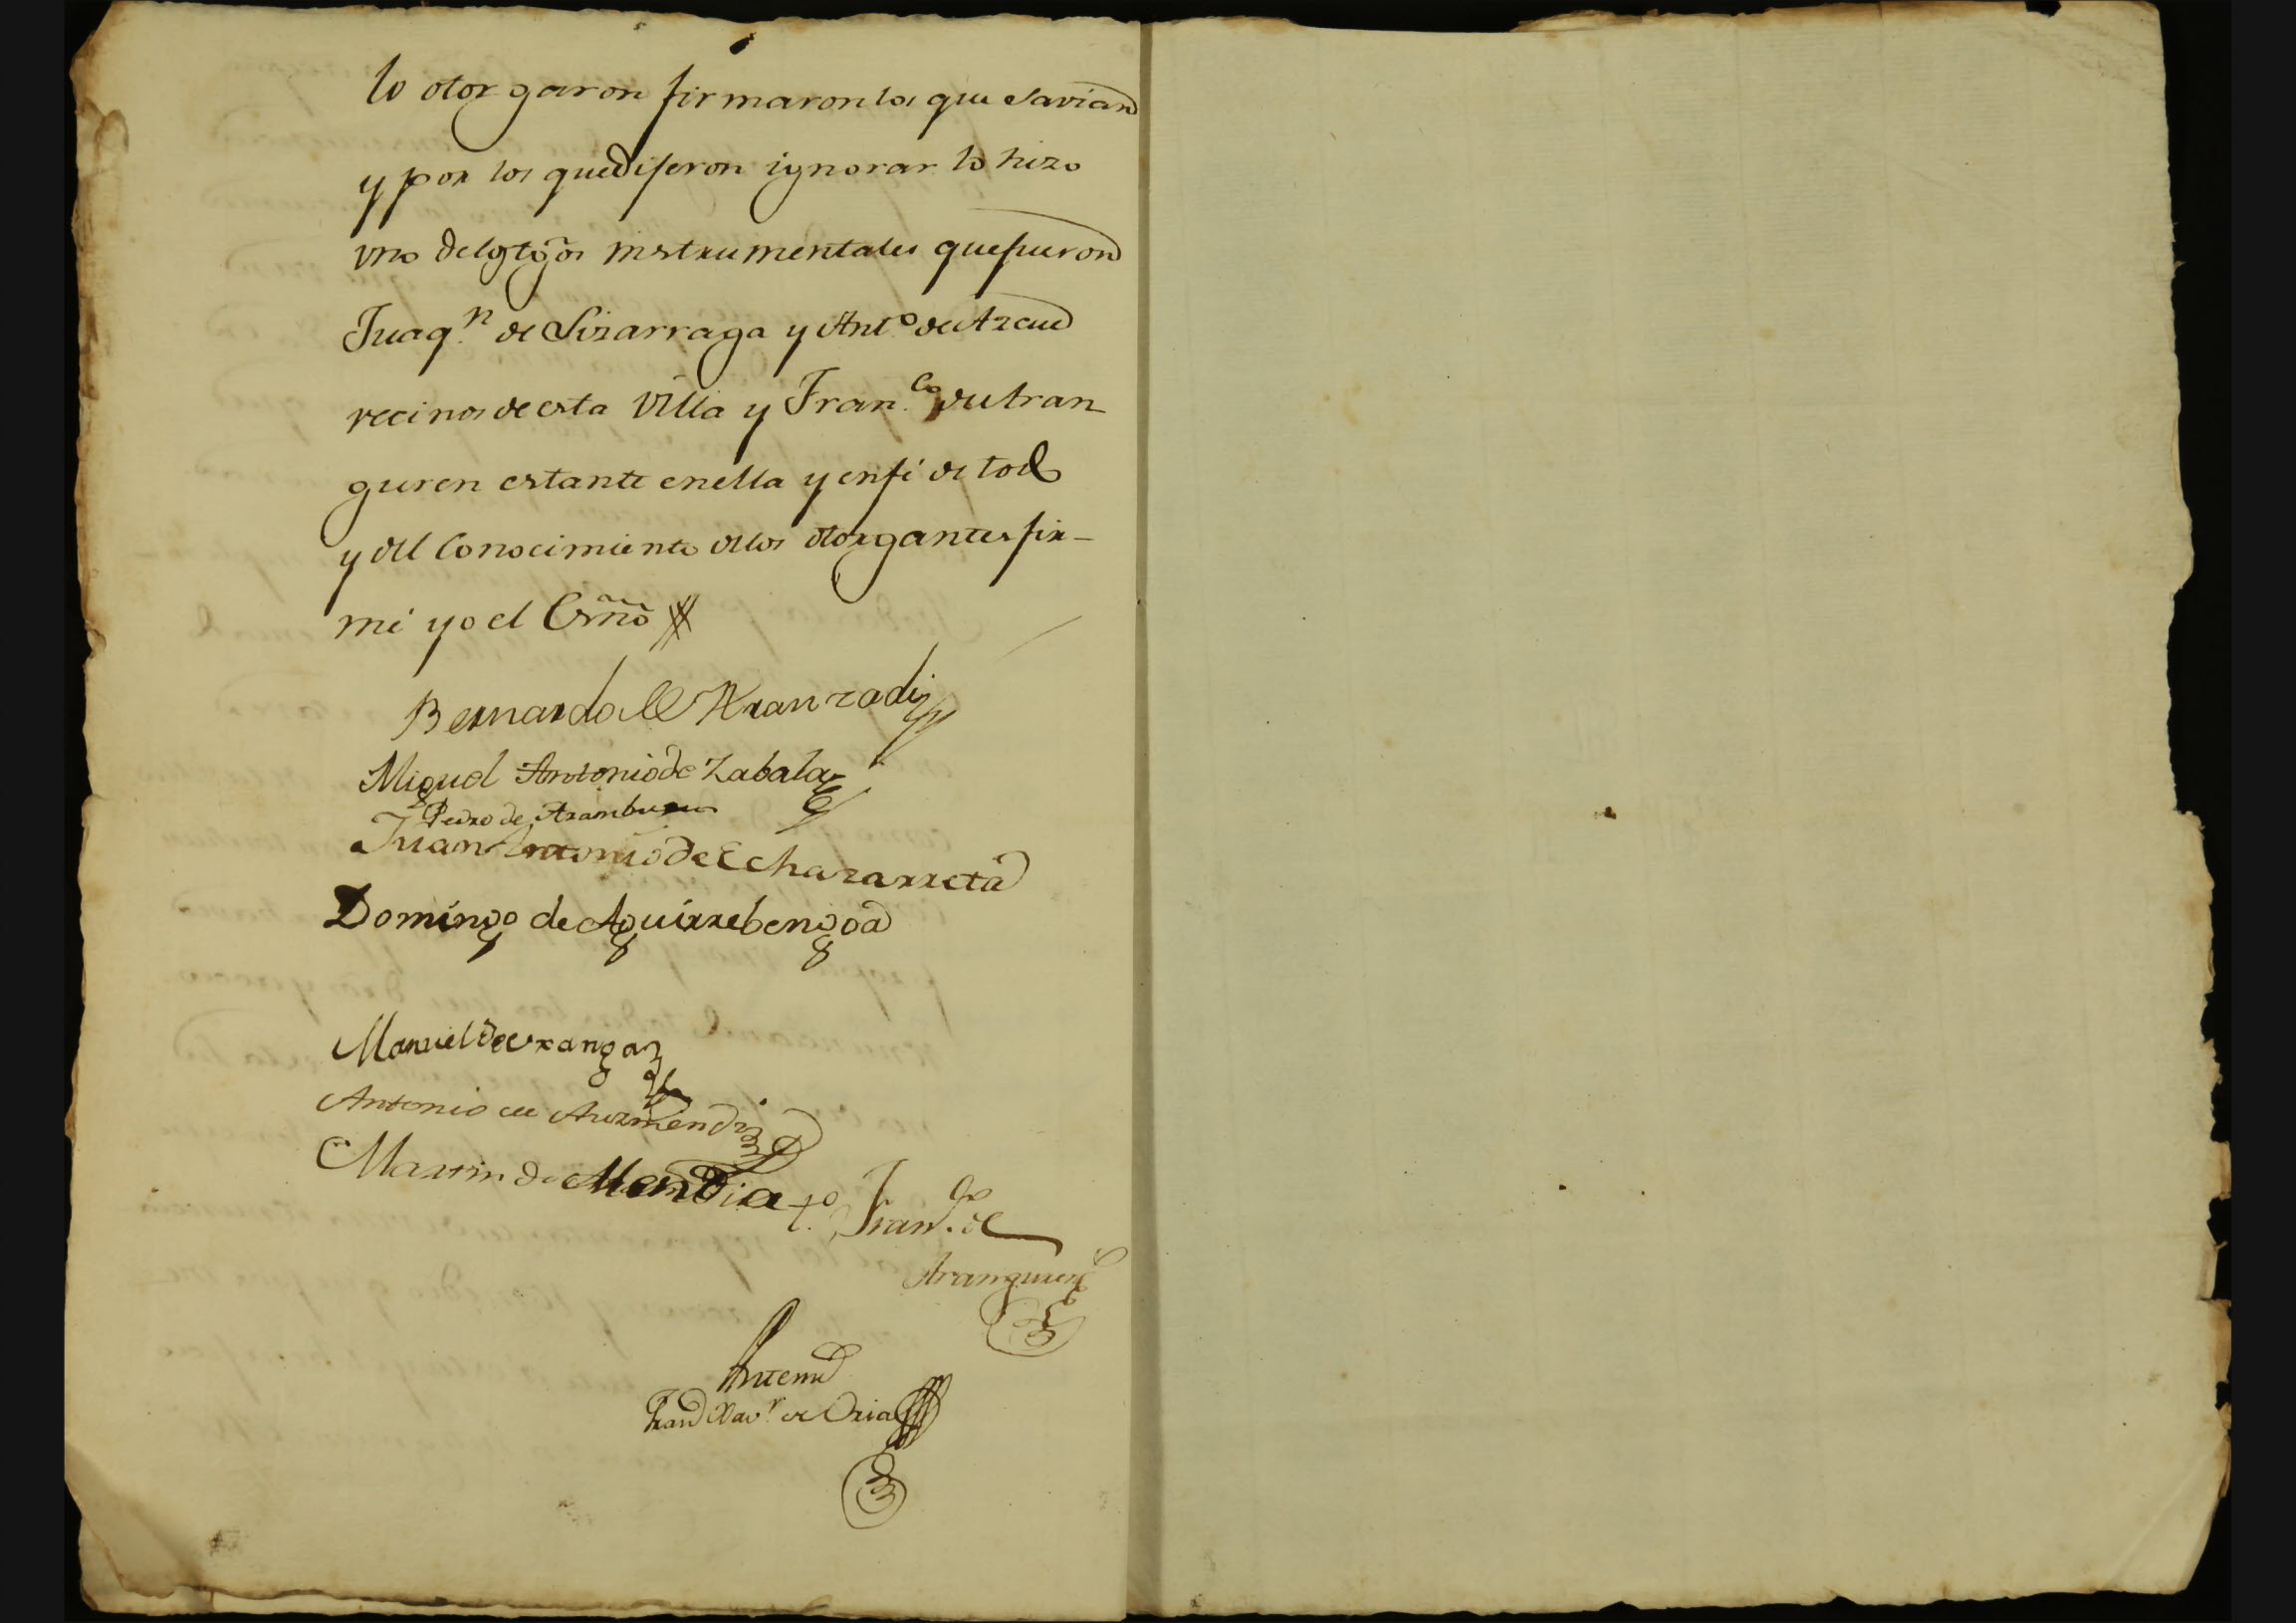 lo otorgaron firmaron los que savian
y por los que dijeron ignorar lo hizo
uno de los tgõs instrumentales que fueron
Juaq.n de Lizarraga y Ant.o de Azcue
vecinos de esta Villa y Fran.co de Aran
guren estante en ella y en fe de todo
y del Conocimiento de los otorgantes fir-
mé yo el Es̃no
Bernardo de Aranzadi
Miguel Antonio de Zabala
Pedro de Aramburu
Juan Antonio de Echazarreta
Domingo de Aguirrebengoa
Manuel de Uranga
Antonio de Auzmendi
Martin de Mendia t.o Fran.co de
Aranguren
Antemi
Fran.co Xav.r de Oria